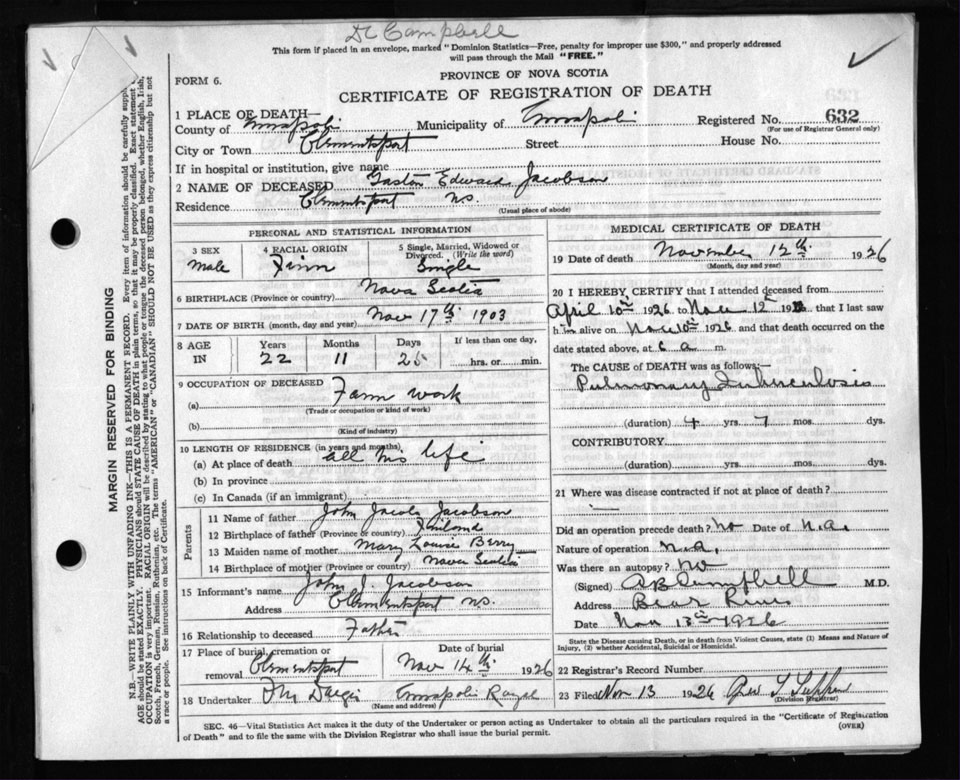 Dr Campbell
This form if placed in an envelope, marked "Dominion Statistics—Free, penalty for improper use $300," and properly addressed
will pass through the Mail "FREE."
FORM 6.
PROVINCE OF NOVA SCOTIA
CERTIFICATE OF REGISTRATION OF DEATH
1 PLACE OF DEATH—
County of Annapolis Municipality of Annapolis Registered No. 632
(For use of Registrar General only)
City or Town Clementsport Street House No.
If in hospital or institution, give name
2 NAME OF DECEASED Gaston Edward Jacobson
Residence Clementsport N.S.
(Usual place of abode)
PERSONAL AND STATISTICAL INFORMATION
3 SEX 4 RACIAL ORIGIN 5 Single, Married, Widowed or Divorced. (Write the word)
Male Finn Single
6 BIRTHPLACE (Province or country) Nova Scotia
7 DATE OF BIRTH (month, day and year) Nov 17th 1903
8 AGE IN Years Months Days If less than one day,
22 11 25 hrs. or min.
9 OCCUPATION OF DECEASED
(a) Farm work
(Trade or occupation or kind of work)
(b)
(Kind of industry)
10 LENGTH OF RESIDENCE (in years and months)
(a) At place of death all his life
(b) In province
(c) In Canada (if an immigrant)
Parents
11 Name of father John Jacob Jacobson
12 Birthplace of father (Province or country) Finland
13 Maiden name of mother Mary Louise Berry
14 Birthplace of mother (Province or country) Nova Scotia
15 Informant's name John J. Jacobson
Address Clementsport N.S.
16 Relationship to deceased Father
17 Place of burial, cremation or removal Clementsport Date of burial Nov 14th 1926
18 Undertaker Annapolis Royal
(Name and address)
MEDICAL CERTIFICATE OF DEATH
19 Date of death November 12th 1926
(Month, day and year)
20 I HEREBY CERTIFY that I attended deceased from
April 10th 1926 to Nov 12th 192 that I last saw
him alive on Nov 10th 1926 and that death occurred on the
date stated above, at 6 a m.
The CAUSE of DEATH was as follows:—
Pulmonary Tuberculosis
(duration) 4 yrs. 7 mos. dys.
CONTRIBUTORY
(duration) yrs. mos. dys.
21 Where was disease contracted if not at place of death?
—
Did an operation precede death? No Date of N.A.
Nature of operation N.A.
Was there an autopsy? No
(Signed) AB Campbell M.D.
Address Bear River
Date Nov 13th 1926
State the Disease causing Death, or in death from Violent Causes, state (1) Means and Nature of
Injury, (2) whether Accidental, Suicidal or Homicidal.
22 Registrar's Record Number
23 Filed Nov 13 1926
(Division Registrar)
SEC. 46—Vital Statistics Act makes it the duty of the Undertaker or person acting as Undertaker to obtain all the particulars required in the "Certificate of Registration
of Death" and to file the same with the Division Registrar who shall issue the burial permit.
(OVER)
MARGIN RESERVED FOR BINDING
N.B.—WRITE PLAINLY WITH UNFADING INK—THIS IS A PERMANENT RECORD. Every item of information should be carefully
AGE should be stated EXACTLY. PHYSICIANS should STATE CAUSE OF DEATH in plain terms, so that it may be properly classified. Exact statement
OCCUPATION is very important. RACIAL ORIGIN will be described by stating to what people or tongue the deceased person belonged, whether English, Irish,
Scotch, French, German, Russian, Ruthenian, etc. The terms "AMERICAN" or "CANADIAN" SHOULD NOT BE USED as they express citizenship but not
a race or people. See instructions on back of Certificate.